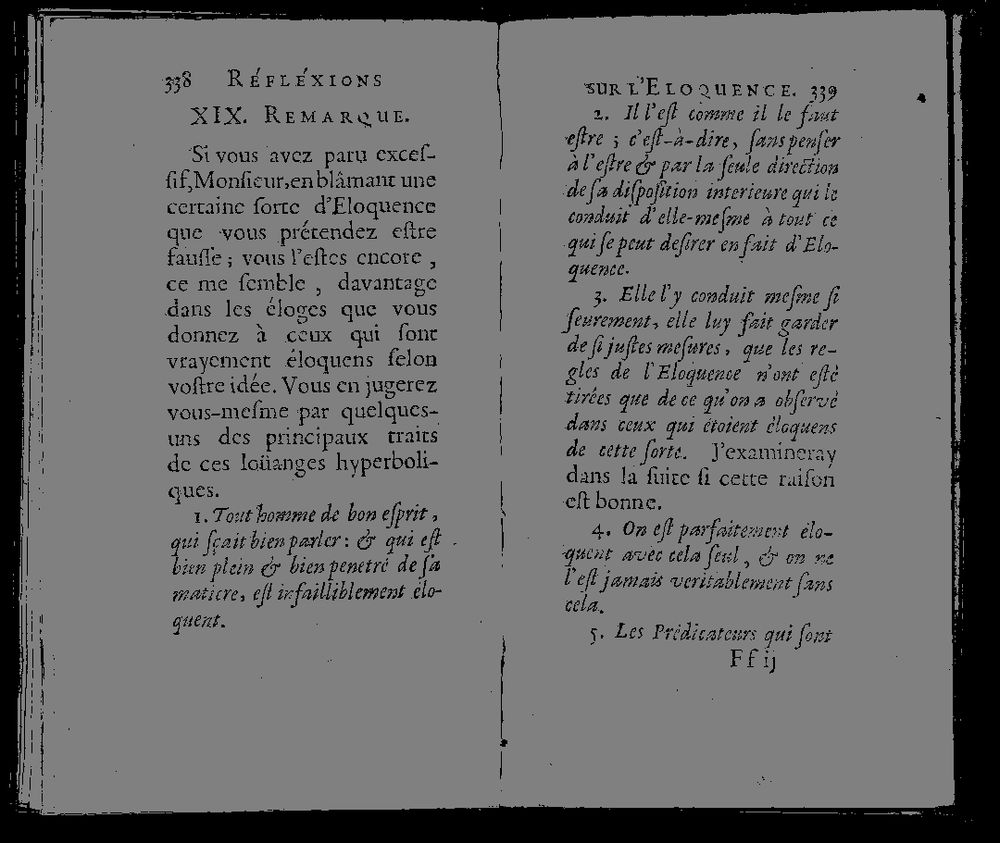 338 RÉFLÉXIONS
XIX. REMARQUE.
Si vous avez paru exceſ-
ſif, Monſieur, en blâmant une
certaine ſorte d'Eloquence
que vous prétendez eſtre
fauſſe ; vous l'eſtes encore ,
ce me ſemble , davantage
dans les éloges que vous
donnez à ceux qui ſont
vrayement éloquens ſelon
voſtre idée. Vous en jugerez
vous-meſme par quelques-
uns des principaux traits
de ces loüanges hyperboli-
ques.
1. Tout homme de bon eſprit ,
qui ſçait bien parler : & qui eſt
bien plein & bien penetré de ſa
matiere, eſt infailliblement élo-
quent.
SUR L'ELOQUENCE. 339
2. Il l'eſt comme il le faut
eſtre ; c'eſt-à-dire, ſans penſer
à l'eſtre & par la ſeule direction
de ſa diſpoſition interieure qui le
conduit d'elle-meſme à tout ce
qui ſe peut deſirer en fait d'Elo-
quence.
3. Elle l'y conduit meſme ſi
ſeurement, elle luy fait garder
de ſi juſtes meſures, que les re-
gles de l'Eloquence n'ont eſté
tirées que de ce qu'on a obſervé
dans ceux qui étoient éloquens
de cette ſorte. J'examineray
dans la ſuite ſi cette raiſon
eſt bonne.
4. On eſt parfaitement élo-
quent avec cela ſeul, & on ne
l'eſt jamais veritablement ſans
cela.
5. Les Prédicateurs qui ſont
Ff ij